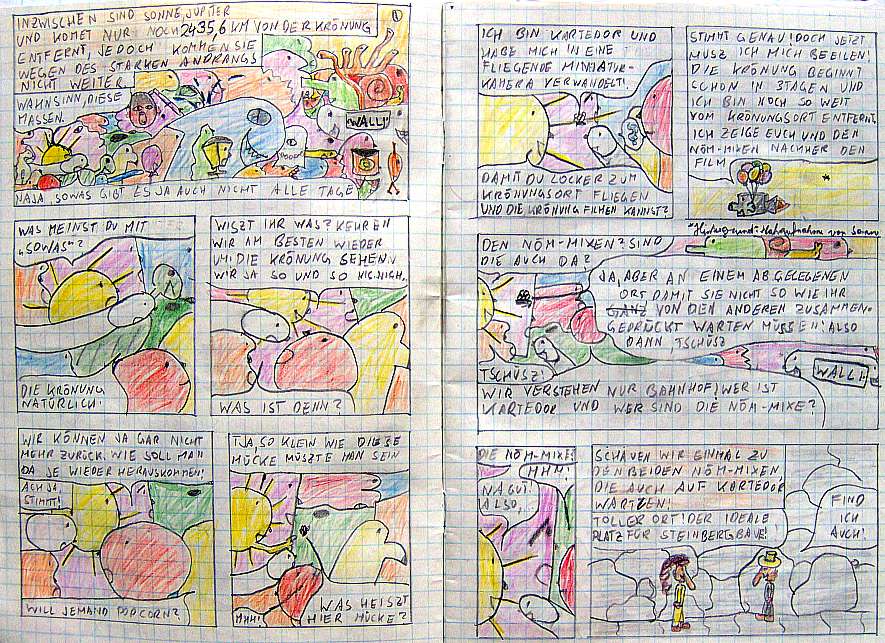 INZWISCHEN SIND SONNE, JUPITER
UND KOMET NUR NOCH 2435,6 KM VON DER KRÖNUNG
ENTFERNT, JEDOCH KOMMEN SIE
WEGEN DES STARKEN ANDRANGS
NICHT WEITER
WAHNSINN, DIESE
MASSEN.
WALLI
NAJA SOWAS GIBT ES JA AUCH NICHT ALLE TAGE
WAS MEINST DU MIT
„SOWAS"?
DIE KRÖNUNG,
NATÜRLICH!
WISZT IHR WAS? KEHREN
WIR AM BESTEN WIEDER
UM! DIE KRÖNUNG SEHEN
WIR JA SO UND SO NIC.NICH.
WAS IST DENN?
WIR KÖNNEN JA GAR NICHT
MEHR ZURÜCK. WIE SOLL MAN
DA JE WIEDER HERAUSKOMMEN!
ACH JA,
STIMMT!
WILL JEMAND POPCORN?
TJA, SO KLEIN WIE DIESE
MÜCKE MÜSZTE MAN SEIN
HHH!
WAS HEISZT
HIER MÜCKE?
ICH BIN KARTEDOR UND
HABE MICH IN EINE
FLIEGENDE MINIATUR-
KAMERA VERWANDELT!
DAMIT DU LOCKER ZUM
KRÖNUNGSORT FLIEGEN
UND DIE KRÖNUNG FILMEN KANNST?
STIMMT GENAU! DOCH JETZT
MUSZ ICH MICH BEEILEN!
DIE KRÖNUNG BEGINNT
SCHON IN 3 TAGEN UND
ICH BIN NOCH SO WEIT
VOM KRÖNUNGSORT ENTFERNT.
ICH ZEIGE EUCH UND DEN
NÖM-MIXEN NACHHER DEN
FILM
DEN NÖM-MIXEN? SIND
DIE AUCH DA?
JA, ABER AN EINEM ABGELEGENEN
ORT, DAMIT SIE NICHT SO WIE IHR
GANZ VON DEN ANDEREN ZUSAMMEN-
GEDRÜCKT WARTEN MÜSSEN! ALSO
DANN, TSCHÜSZ
TSCHÜSZ!
WALLI
WIR VERSTEHEN NUR BAHNHOF! WER IST
KARTEDOR UND WER SIND DIE NÖM-MIXE?
DIE NÖM-MIXE?
HMM!
NA GUT.
ALSO,
SCHAUEN WIR EINMAL ZU
DEN BEIDEN NÖM-MIXEN,
DIE AUCH AUF KARTEDOR
WARTEN!
TOLLER ORT! DER IDEALE
PLATZ FÜR STEINBERGBAUE!
FIND
ICH
AUCH!